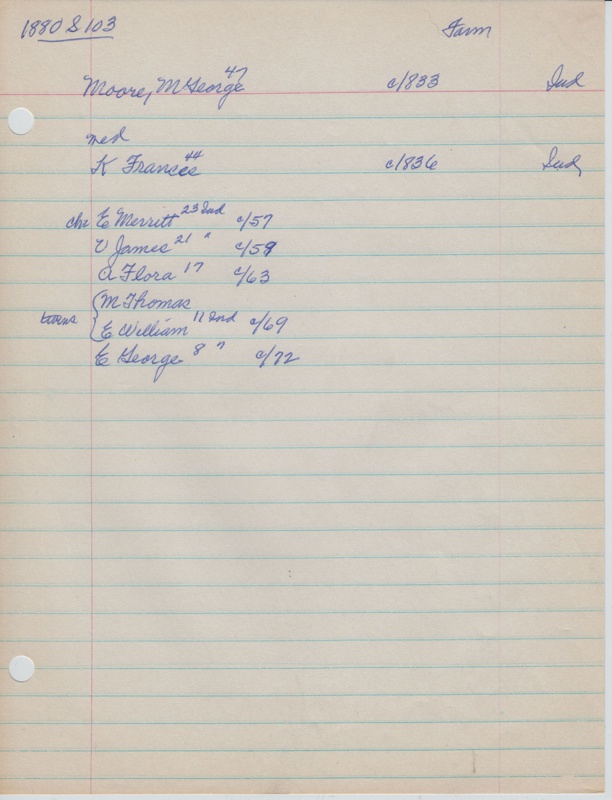 1880 S 103 Farm
Moore, M George 47 c/833 Ind
med
K Frances 44 c/836 Ind
chr E Merritt 23 Ind c/57
V James 21 " c/59
A Flora 17 c/63
M Thomas
twins E William 11 Ind c/69
E George 8 " c/72